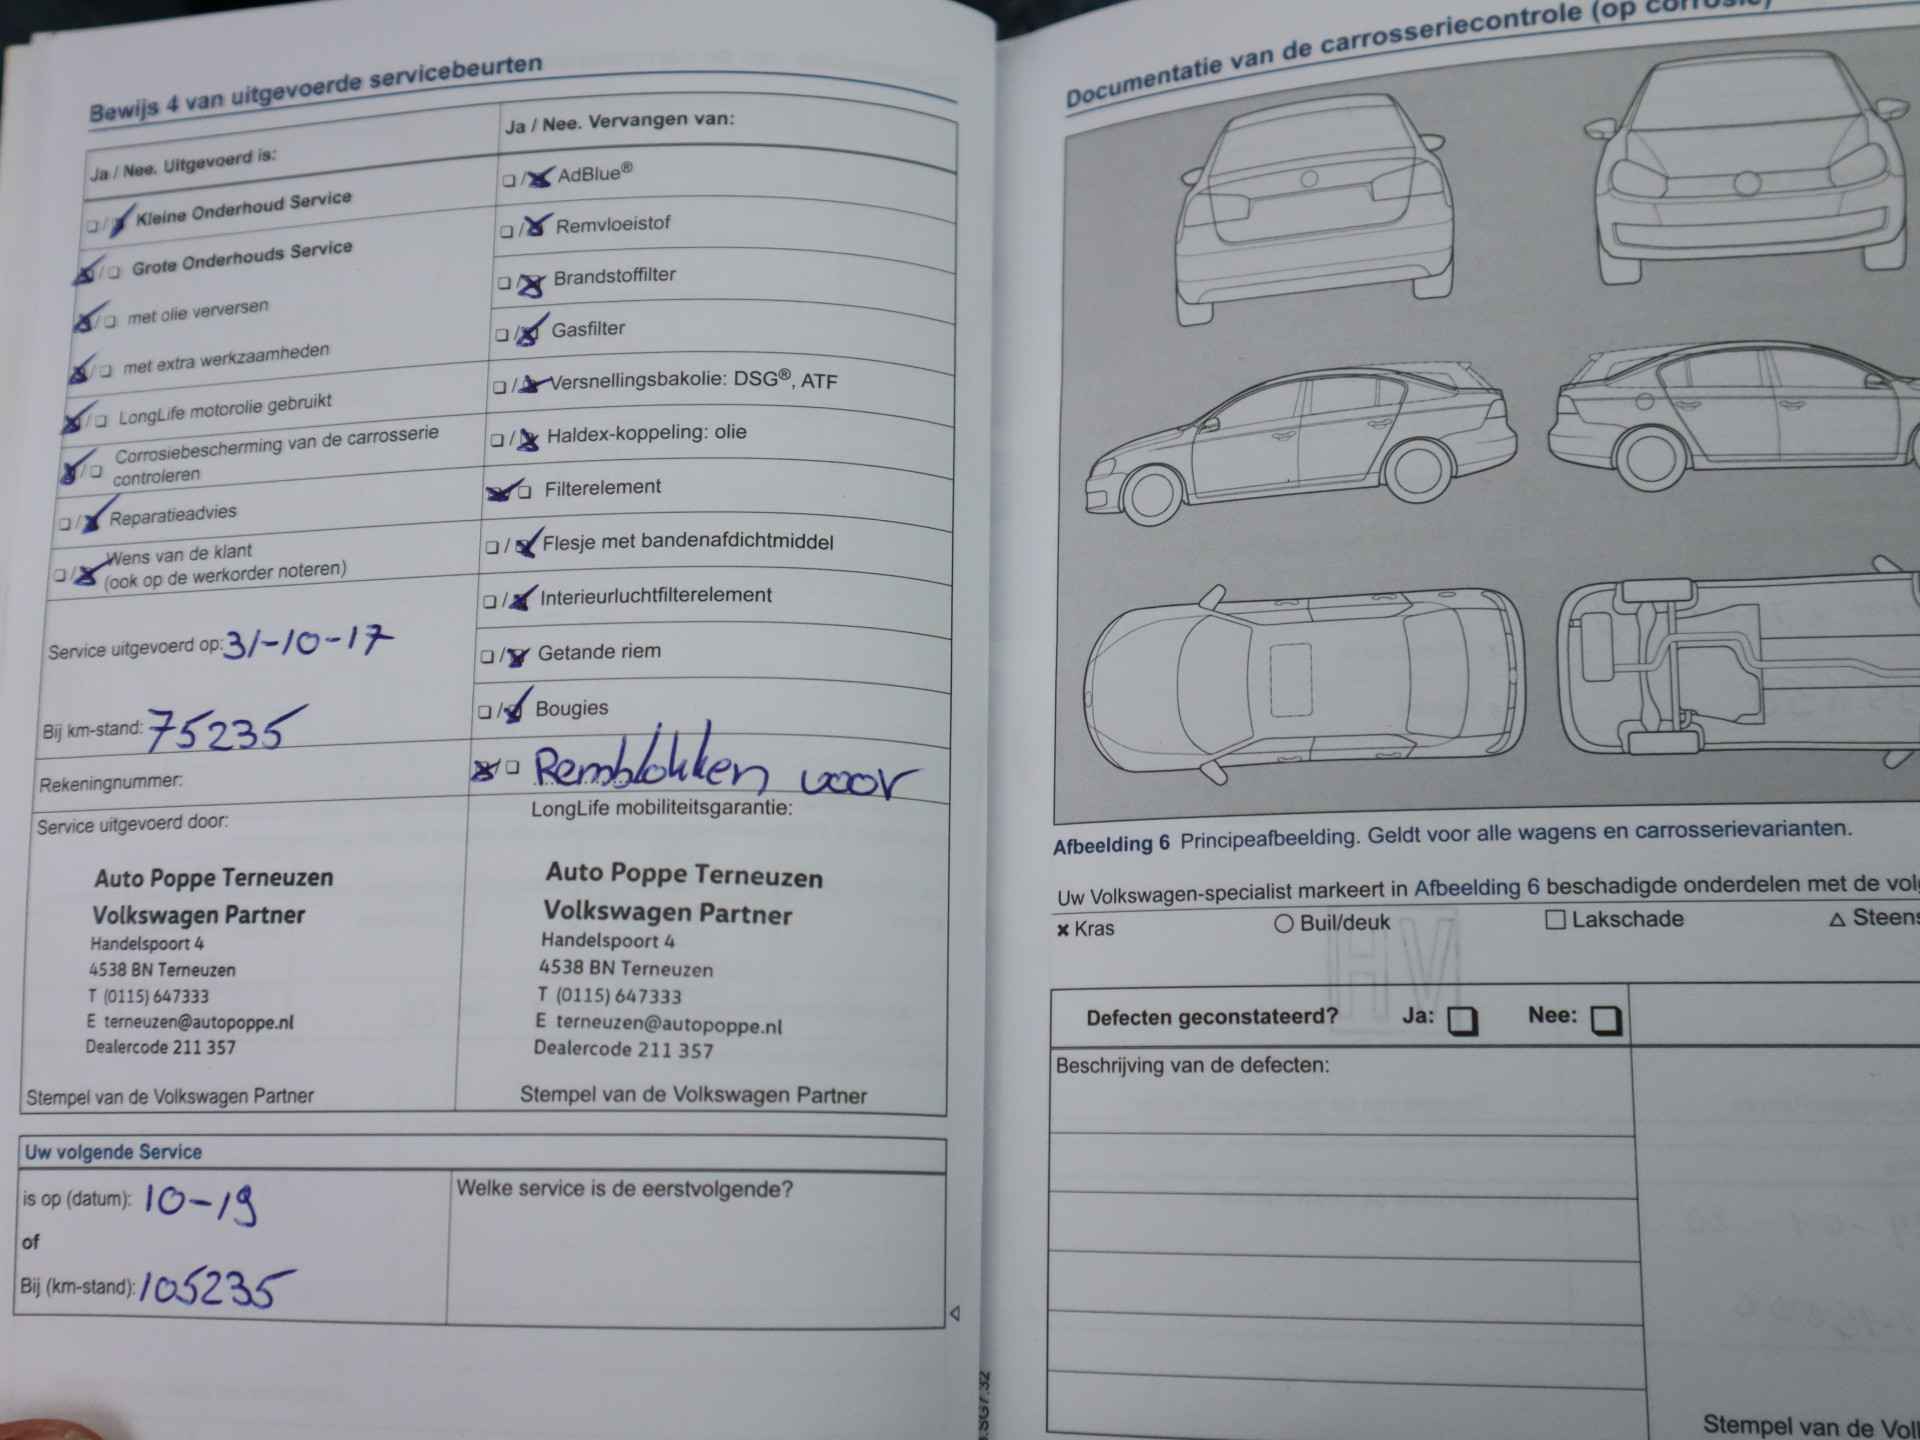 Bewijs 4 van uitgevoerde servicebeurten
Ja / Nee. Uitgevoerd is:
Kleine Onderhoud Service
Grote Onderhouds Service
met olie verversen
met extra werkzaamheden
LongLife motorolie gebruikt
Corrosiebescherming van de carrosserie
controleren
Reparatieadvies
Wens van de klant
(ook op de werkorder noteren)
Service uitgevoerd op: 31-10-17
Bij km-stand: 75235
Rekeningnummer:
Service uitgevoerd door:
Auto Poppe Terneuzen
Volkswagen Partner
Handelspoort 4
4538 BN Terneuzen
T (0115) 647333
E terneuzen@autopoppe.nl
Dealercode 211 357
Stempel van de Volkswagen Partner
Ja / Nee. Vervangen van:
AdBlue®
Remvloeistof
Brandstoffilter
Gasfilter
Versnellingsbakolie: DSG®, ATF
Haldex-koppeling: olie
Filterelement
Flesje met bandenafdichtmiddel
Interieurluchtfilterelement
Getande riem
Bougies
Remblokken voor
LongLife mobiliteitsgarantie:
Auto Poppe Terneuzen
Volkswagen Partner
Handelspoort 4
4538 BN Terneuzen
T (0115) 647333
E terneuzen@autopoppe.nl
Dealercode 211 357
Stempel van de Volkswagen Partner
Uw volgende Service
is op (datum): 10-19
of
Bij (km-stand): 105235
Welke service is de eerstvolgende?
Documentatie van de carrosseriecontrole (op corrosie)
Afbeelding 6 Principeafbeelding. Geldt voor alle wagens en carrosserievarianten.
Uw Volkswagen-specialist markeert in Afbeelding 6 beschadigde onderdelen met de
Kras
Buil/deuk
Lakschade
Defecten geconstateerd? Ja: Nee:
Beschrijving van de defecten:
Stempel van de